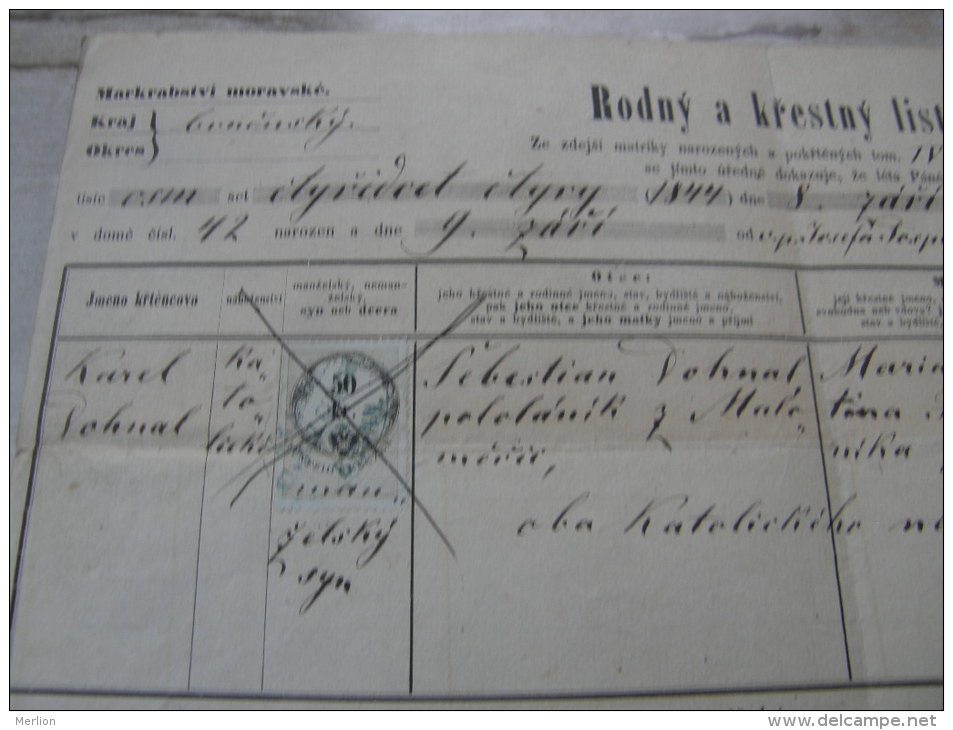 Markrabství moravské.
Rodný a křestný list
Kraj
Okres
brněnský.
Ze zdejší matriky narozených a pokřtěných tom. IV
se jímto úředně dokazuje, že léta Páně
tisíc osm set čtyřidcet čtyry (1844) dne 8. září
v domě čísl. 42 narozen a dne 9. září od v.p. Josefa
Jmeno křtěncovo
náboženství
manželský, neman-
želský,
syn neb dcera
Otec:
jeho křestné a rodinné jmeno, stav, bydliště a náboženství,
pak jeho otce křestné a rodinné jmeno,
stav a bydliště, a jeho matky jmeno a příjmí
M
její křestné jmeno,
svobodna neb vdova?
stav a bydliště,
Karel
Dohnal
ka„
to„
lické
50
kr
man„
želský
syn
Šebestian Dohnal
pololáník z Malo„
měřic,
oba katolického
Maria
nika
Merlion
www.delcampe.net